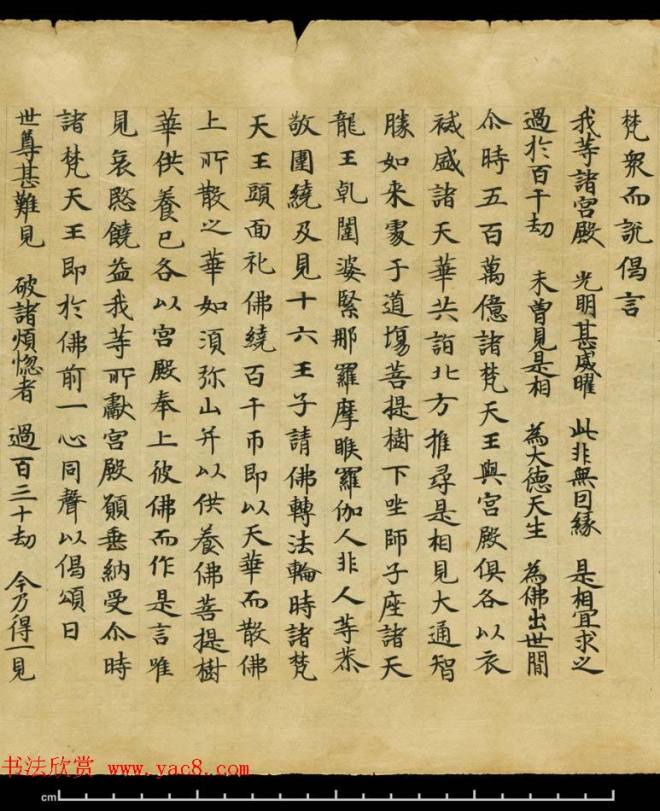 梵衆而說偈言
我等諸宮殿　光明甚威曜　此非無因緣　是相宜求之
過於百千劫　未曾見是相　為大德天生　為佛出世間
尒時五百萬億諸梵天王與宮殿俱各以衣
祴盛諸天華共詣北方推尋是相見大通智
勝如来處于道場菩提樹下坐師子座諸天
龍王乹闥婆緊那羅摩睺羅伽人非人等恭
敬圍繞及見十六王子請佛轉法輪時諸梵
天王頭面礼佛繞百千帀即以天華而散佛
上所散之華如須弥山并以供養佛菩提樹
華供養已各以宮殿奉上彼佛而作是言唯
見哀愍饒益我等所獻宮殿願垂納受尒時
諸梵天王即於佛前一心同聲以偈頌曰
世尊甚難見　破諸煩惚者　過百三十劫　今乃得一見
书法欣赏 www.yac8.com
cm